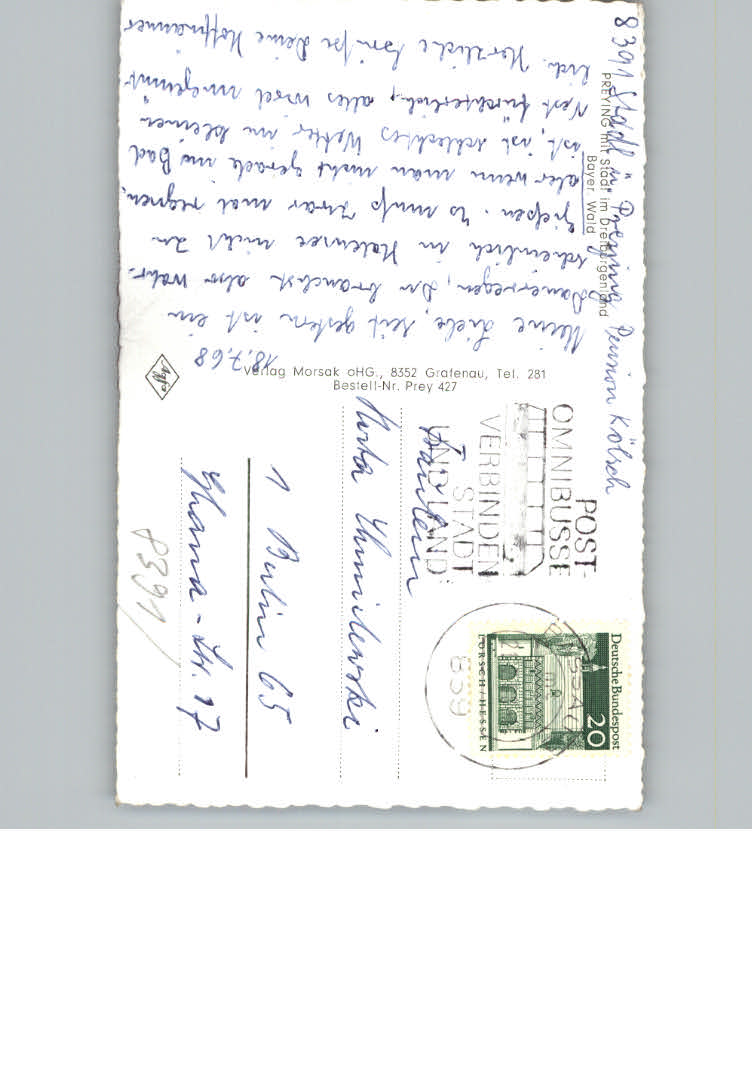 8391 Stadl ü. Preying Pension Kölsch
PREYING mit Stadl im Dreiburgenland
Bayer. Wald
18.7.68
Meine Liebe, seit gestern ist ein
Dauerregen, Du brauchst also wahr-
scheinlich in Halensee nicht zu
gießen. Es muß zwar mal regnen,
aber wenn man nicht gerade im Bad
ist, ist schlechtes Wetter im kleinen
Nest fürchterlich, alles wird ungemüt-
lich. Herzliche Grüße Deine
Verlag Morsak oHG., 8352 Grafenau, Tel. 281
Bestell-Nr. Prey 427
Agfa
POST-
OMNIBUSSE
VERBINDEN
STADT
UND LAND
839
Deutsche Bundespost
20
LORSCH/HESSEN
Fräulein
Herta
1 Berlin 65
Ghana-Str. 17
8391/